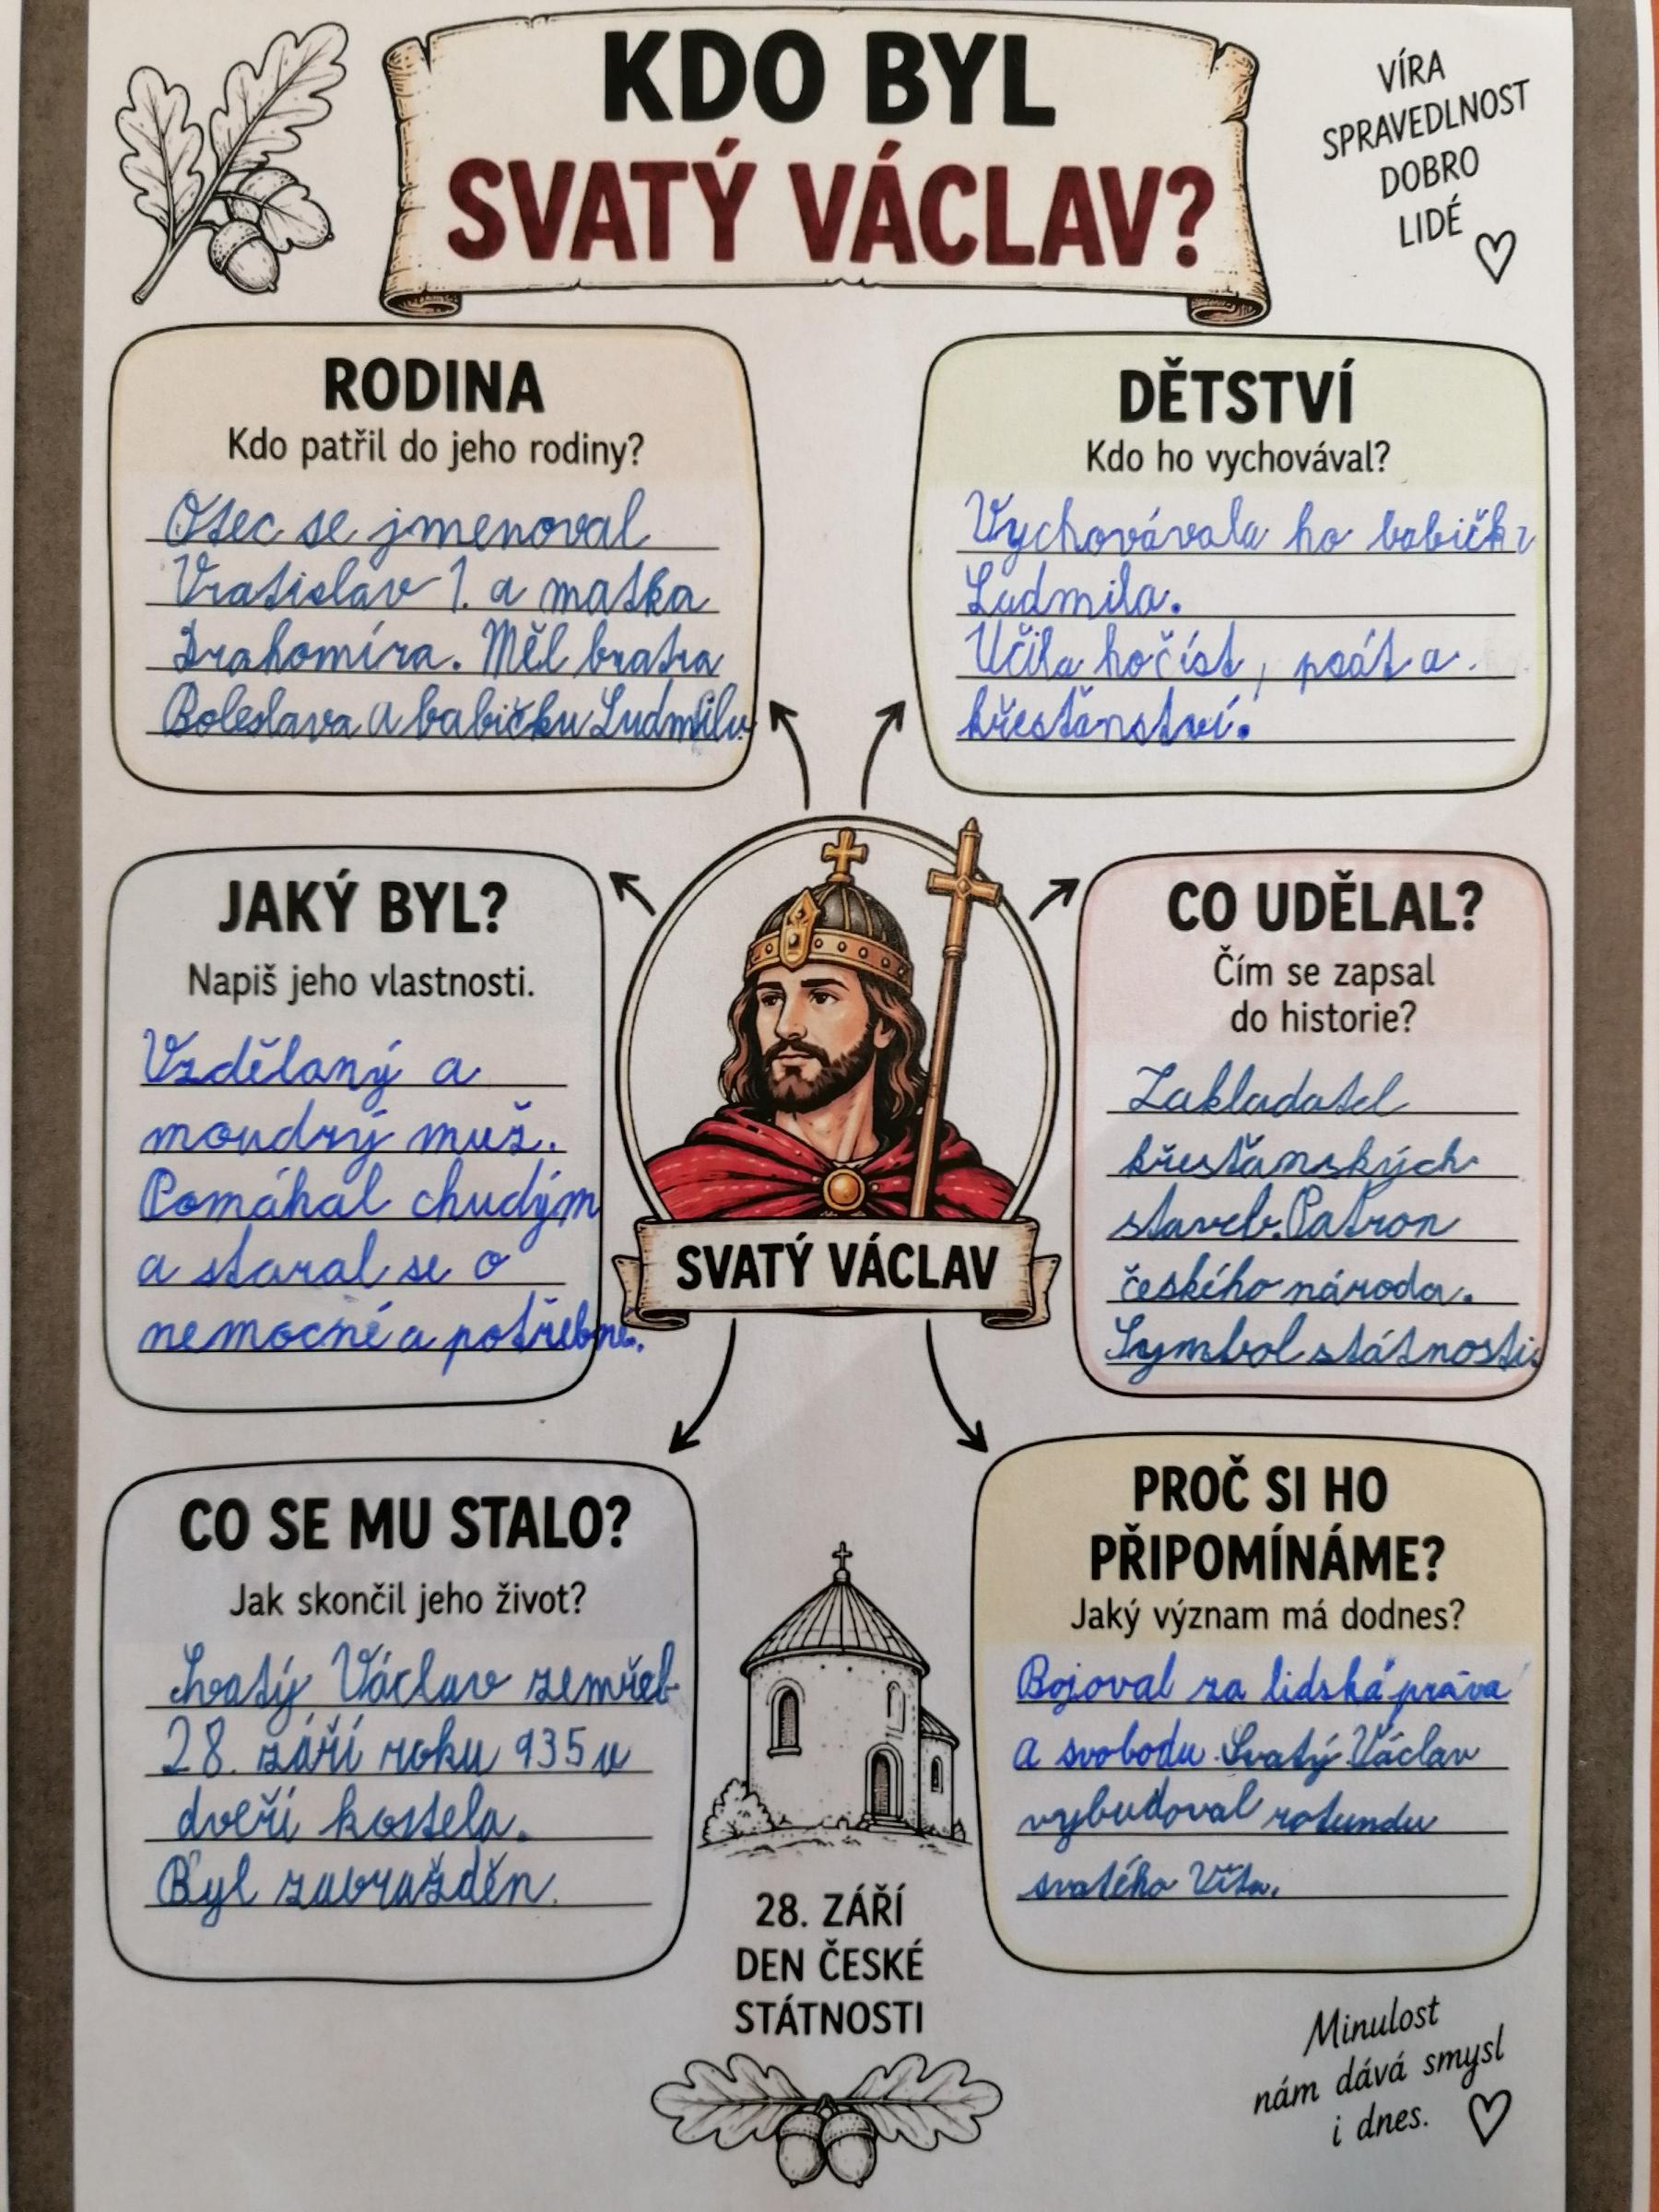 KDO BYL
SVATÝ VÁCLAV?
VÍRA
SPRAVEDLNOST
DOBRO
LIDÉ
RODINA
Kdo patřil do jeho rodiny?
Otec se jmenoval
Vratislav 1. a matka
Drahomíra. Měl bratra
Boleslava a babičku Ludmilu.
DĚTSTVÍ
Kdo ho vychovával?
Vychovávala ho babička
Ludmila.
Učila ho číst, psát a
křesťanství.
JAKÝ BYL?
Napiš jeho vlastnosti.
Vzdělaný a
moudrý muž.
Pomáhal chudým
a staral se o
nemocné a potřebné.
CO UDĚLAL?
Čím se zapsal
do historie?
Zakladatel
křesťanských
staveb. Patron
českího národa.
Symbol státnosti.
SVATÝ VÁCLAV
CO SE MU STALO?
Jak skončil jeho život?
Svatý Václav zemřel
28. září roku 935 u
dveří kostela.
Byl zavražděn.
PROČ SI HO
PŘIPOMÍNÁME?
Jaký význam má dodnes?
Bojoval za lidská práva
a svobodu. Svatý Václav
vybudoval rotundu
svatého Víta.
28. ZÁŘÍ
DEN ČESKÉ
STÁTNOSTI
Minulost
nám dává smysl
i dnes.